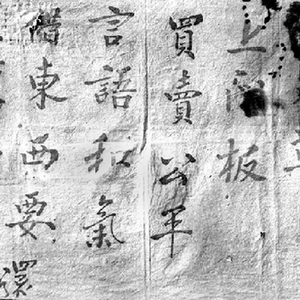 上門板
買賣公平
言語和氣
借東西要還